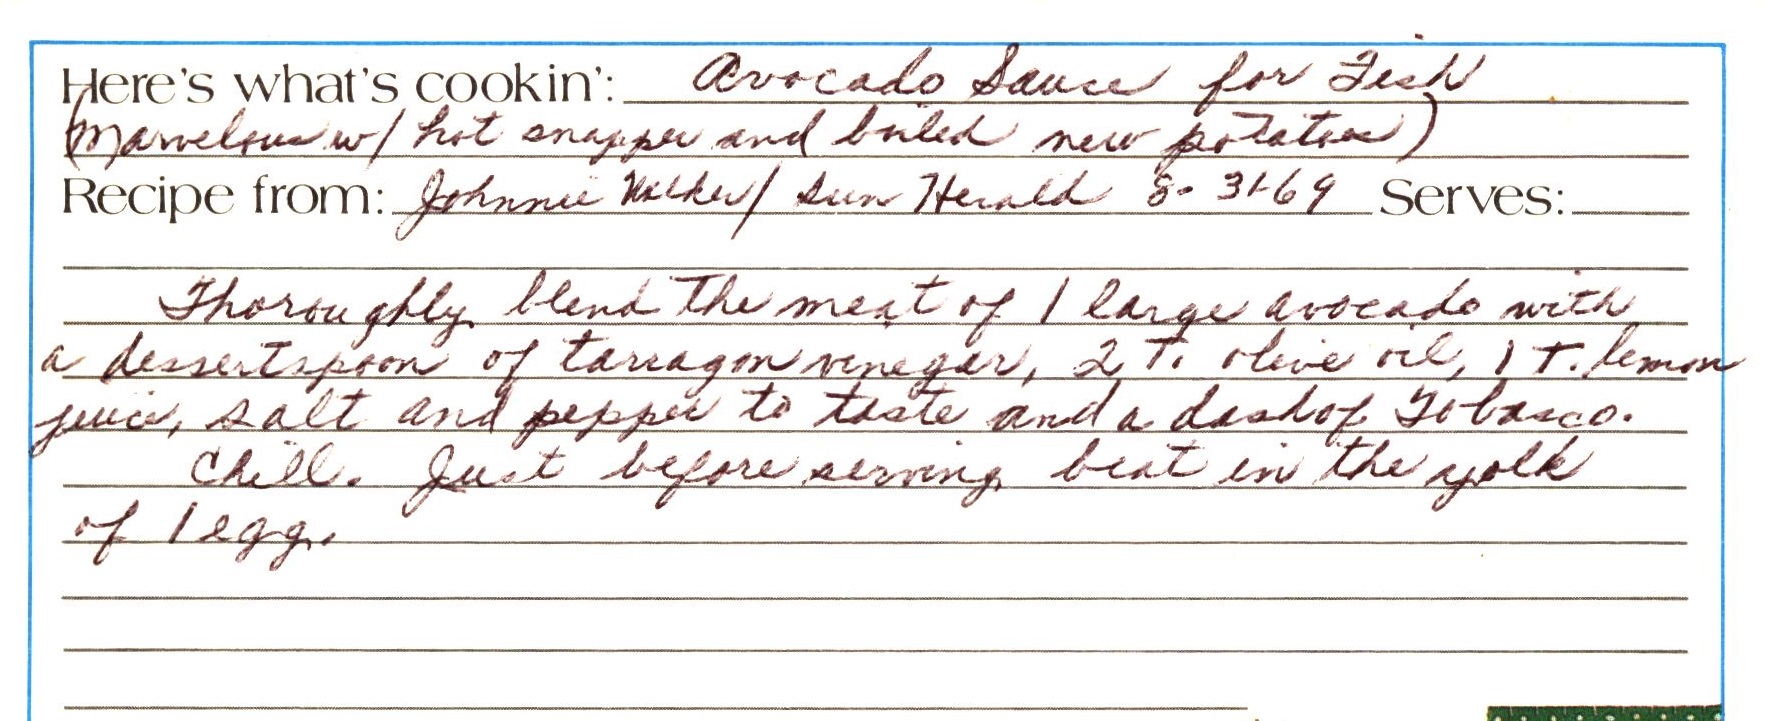 Here's what's cookin': Avocado Sauce for Fish
(Marvelous w/ hot snapper and boiled new potatoes)
Recipe from: Johnnie Walker/ Sun Herald 8-31-69 Serves:
Thoroughly blend the meat of 1 large avocado with
a dessertspoon of tarragon vinegar, 2 T. olive oil, 1 T. lemon
juice, salt and pepper to taste and a dash of Tobasco.
Chill. Just before serving beat in the yolk
of 1 egg.